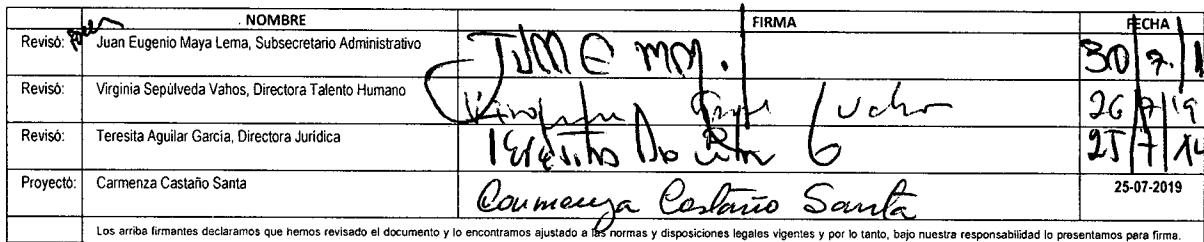 NOMBRE FIRMA FECHA
Revisó: Juan Eugenio Maya Lema, Subsecretario Administrativo 30 7.
Revisó: Virginia Sepúlveda Vahos, Directora Talento Humano 26 7 19
Revisó: Teresita Aguilar García, Directora Jurídica 25 7
Proyectó: Carmenza Castaño Santa Carmenza Castaño Santa 25-07-2019
Los arriba firmantes declaramos que hemos revisado el documento y lo encontramos ajustado a las normas y disposiciones legales vigentes y por lo tanto, bajo nuestra responsabilidad lo presentamos para firma.